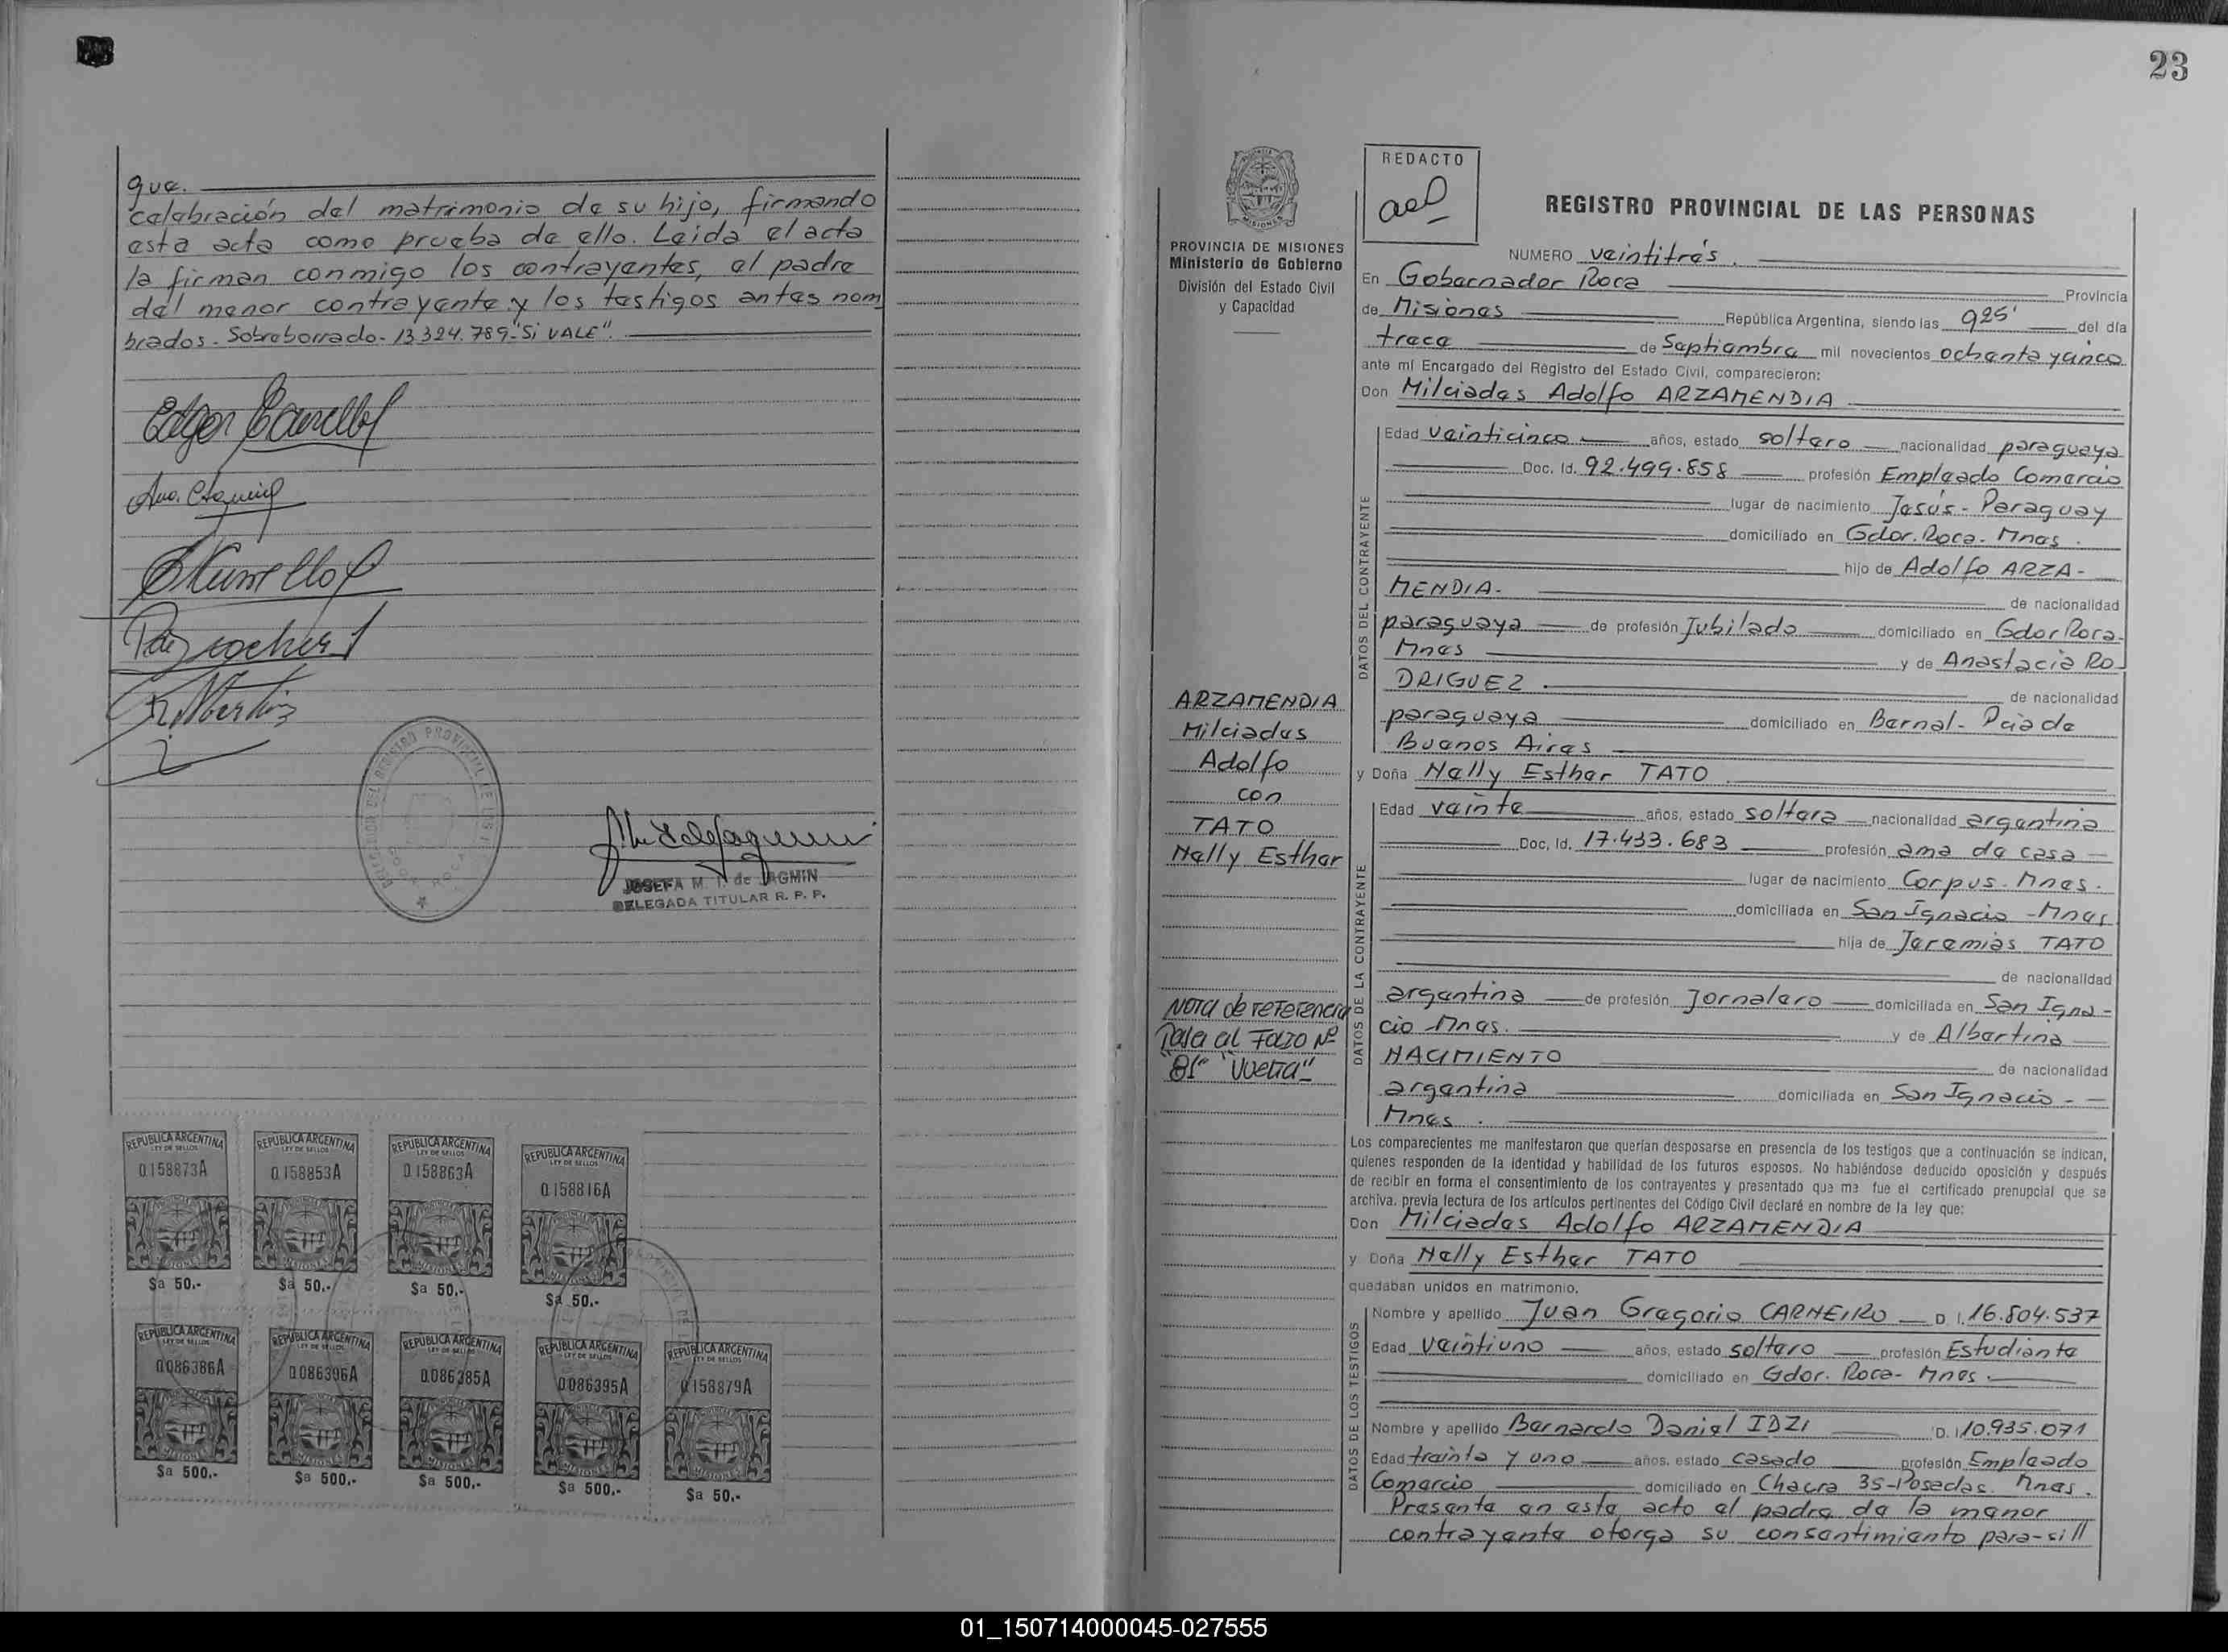 que.
celebración del matrimonio de su hijo, firmando
esta acta como prueba de ello. Leida el acta
la firman conmigo los contrayentes, el padre
del menor contrayente y los testigos antes nom
brados. Sobreborrado - 13.324.789 - "SI VALE".
JOSEFA M. de JAGMIN
DELEGADA TITULAR R. P. P.
REPUBLICA ARGENTINA REPUBLICA ARGENTINA REPUBLICA ARGENTINA REPUBLICA ARGENTINA
LEY DE SELLOS LEY DE SELLOS LEY DE SELLOS LEY DE SELLOS
0158873A 0158853A 0158863A 0158816A
MISIONES MISIONES MISIONES MISIONES
$a 50.- $a 50.- $a 50.- $a 50.-
REPUBLICA ARGENTINA REPUBLICA ARGENTINA REPUBLICA ARGENTINA REPUBLICA ARGENTINA REPUBLICA ARGENTINA
LEY DE SELLOS LEY DE SELLOS LEY DE SELLOS LEY DE SELLOS LEY DE SELLOS
0086386A 0086396A 0086385A 0086395A 0158879A
MISIONES MISIONES MISIONES MISIONES MISIONES
$a 500.- $a 500.- $a 500.- $a 500.- $a 50.-
23
PROVINCIA DE MISIONES
Ministerio de Gobierno
División del Estado Civil
y Capacidad
ARZAMENDIA
Milciades
Adolfo
con
TATO
Nelly Esther
Nota de referencia
Pasa al Folio Nº
"81" "Vuelta"
REDACTO
REGISTRO PROVINCIAL DE LAS PERSONAS
NUMERO veintitrés.
En Gobernador Roca Provincia
de Misiones República Argentina, siendo las 925' del día
trece de Septiembre mil novecientos ochenta y cinco
ante mí Encargado del Registro del Estado Civil, comparecieron:
Don Milciades Adolfo ARZAMENDIA
DATOS DEL CONTRAYENTE
Edad veinticinco años, estado soltero nacionalidad paraguaya
Doc. Id. 92.499.858 profesión Empleado Comercio
lugar de nacimiento Jesús - Paraguay
domiciliado en Gdor. Roca - Mnes.
hijo de Adolfo ARZA-
MENDIA- de nacionalidad
paraguaya de profesión Jubilado domiciliado en Gdor Roca-
Mnes y de Anastacia RO
DRIGUEZ de nacionalidad
paraguaya domiciliado en Bernal - Pcia de
Buenos Aires
y Doña Nelly Esther TATO
DATOS DE LA CONTRAYENTE
Edad veinte años, estado soltera nacionalidad argentina
Doc. Id. 17.433.683 profesión ama de casa
lugar de nacimiento Corpus - Mnes.
domiciliada en San Ignacio - Mnes
hija de Jeremias TATO
de nacionalidad
argentina de profesión Jornalero domiciliada en San Igna-
cio - Mnes. y de Albertina
NACIMIENTO de nacionalidad
argentina domiciliada en San Ignacio -
Mnes.
Los comparecientes me manifestaron que querían desposarse en presencia de los testigos que a continuación se indican,
quienes responden de la identidad y habilidad de los futuros esposos. No habiéndose deducido oposición y después
de recibir en forma el consentimiento de los contrayentes y presentado que me fue el certificado prenupcial que se
archiva, previa lectura de los artículos pertinentes del Código Civil declaré en nombre de la ley que:
Don Milciades Adolfo ARZAMENDIA
y Doña Nelly Esther TATO
quedaban unidos en matrimonio.
DATOS DE LOS TESTIGOS
Nombre y apellido Juan Gregorio CARNEIRO D. I. 16.804.537
Edad veintiuno años, estado soltero profesión Estudiante
domiciliado en Gdor. Roca - Mnes.
Nombre y apellido Bernardo Daniel IDZI D. I. 10.935.071
Edad treinta y uno años, estado casado profesión Empleado
Comercio domiciliado en Chacra 35 - Posadas. Mnes.
Presente en este acto el padre de la menor
contrayente otorga su consentimiento para - si //
01_150714000045-027555